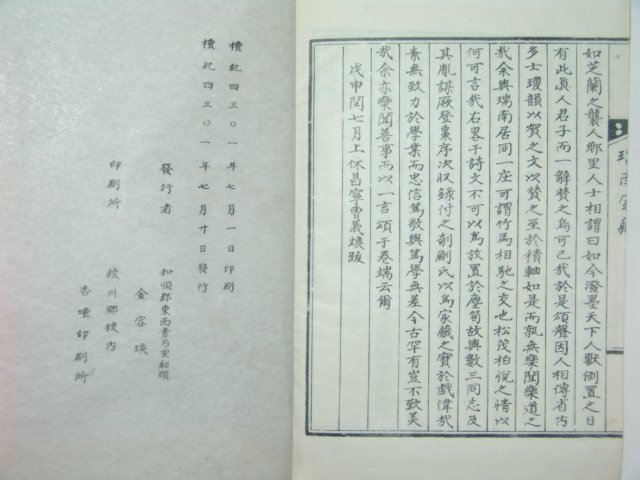 如芝蘭之襲人鄉里人士相謂曰如今潑墨天下人獸倒置之日
有此眞人君子而一辭贊之烏可已哉於是頌聲因人相傳省內
多士瓊韻以賀之文以贊之至於積軸如是而孰無樂聞樂道之
哉余與瑞南居同一座可謂竹馬相馳之交也松茂柏悅之情以
何可言哉右畧干詩文不可以爲放置於塵笥故與數三同志及
其胤謀厥登棗序次収錄付之剞劂氏以爲家藏之寶於戱偉哉
素無致力於學業而忠信篤敬與篤學無差今古罕有豈不歎美
哉余亦樂聞善事而以一言頌于卷端云爾
戊申閏七月上休昌寧曺義煥跋
檀紀四三〇一年七月一日印刷
檀紀四三〇一年七月十日發行
發行者 和順郡東面靑乃里
金容煥
印刷所 綾州鄕校內
杏壇印刷所